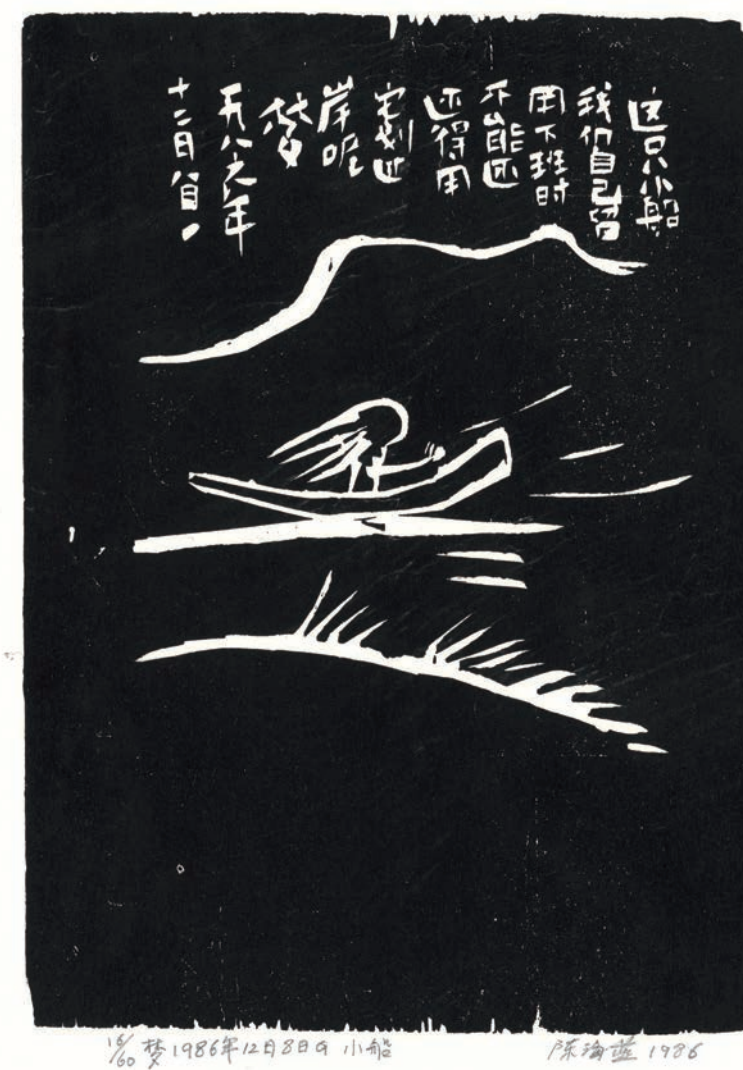 这只小船
我们自己留
用下班时
不能还
还得用
它划
岸呢
梦
一九八六年
十二月八日
16/60 梦1986年12月8日a 小船 陈海燕 1986